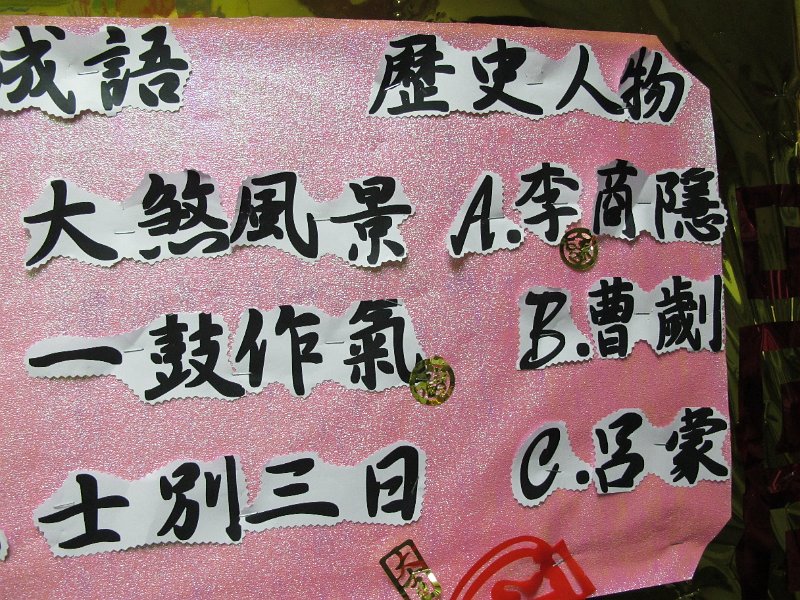 成語 歷史人物
大煞風景 A.李商隱
一鼓作氣 B.曹劌
士別三日 C.呂蒙